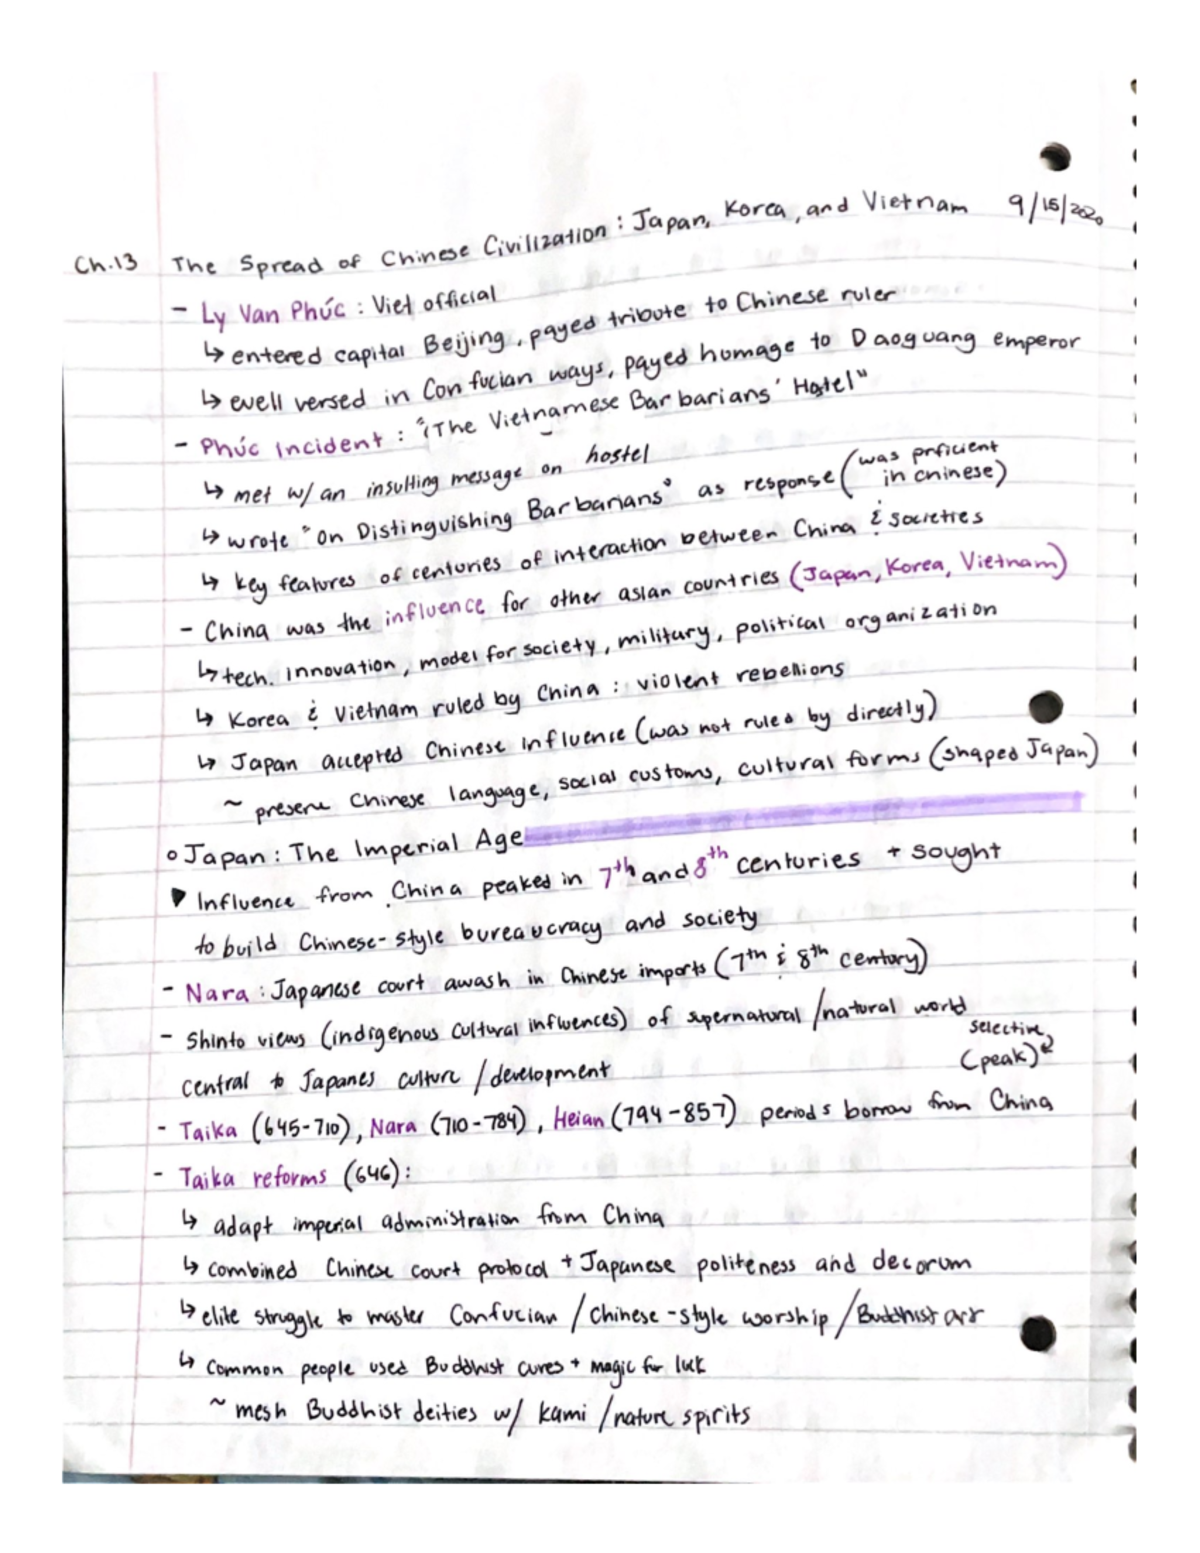 Ch.13 The Spread of Chinese Civilization : Japan, Korea, and Vietnam 9/15/2020
- Ly Van Phúc : Viet official
↳ entered capital Beijing, payed tribute to Chinese ruler
↳ well versed in Confucian ways, payed homage to Daoguang emperor
- Phúc Incident : "(The Vietnamese Barbarians' Hotel"
↳ met w/ an insulting message on hostel
↳ wrote "on Distinguishing Barbarians" as response (was proficient in chinese)
↳ key features of centuries of interaction between China & societies
- China was the influence for other asian countries (Japan, Korea, Vietnam)
↳ tech. innovation, model for society, military, political organization
↳ Korea & Vietnam ruled by China : violent rebellions
↳ Japan accepted Chinese influence (was not ruled by directly)
~ preserve Chinese language, social customs, cultural forms (shaped Japan)
○ Japan : The Imperial Age
▶ Influence from China peaked in 7th and 8th centuries + sought
to build Chinese-style bureaucracy and society
- Nara : Japanese court awash in Chinese imports (7th & 8th century)
- Shinto views (indigenous cultural influences) of supernatural/natural world
selective
central to Japanes culture/development (peak)
- Taika (645-710), Nara (710-784), Heian (794-857) periods borrow from China
- Taika reforms (646):
↳ adapt imperial administration from China
↳ combined Chinese court protocol + Japanese politeness and decorum
↳ elite struggle to master Confucian / Chinese-style worship / Buddhist art
↳ common people used Buddhist cures + magic for luck
~ mesh Buddhist deities w/ kami /nature spirits